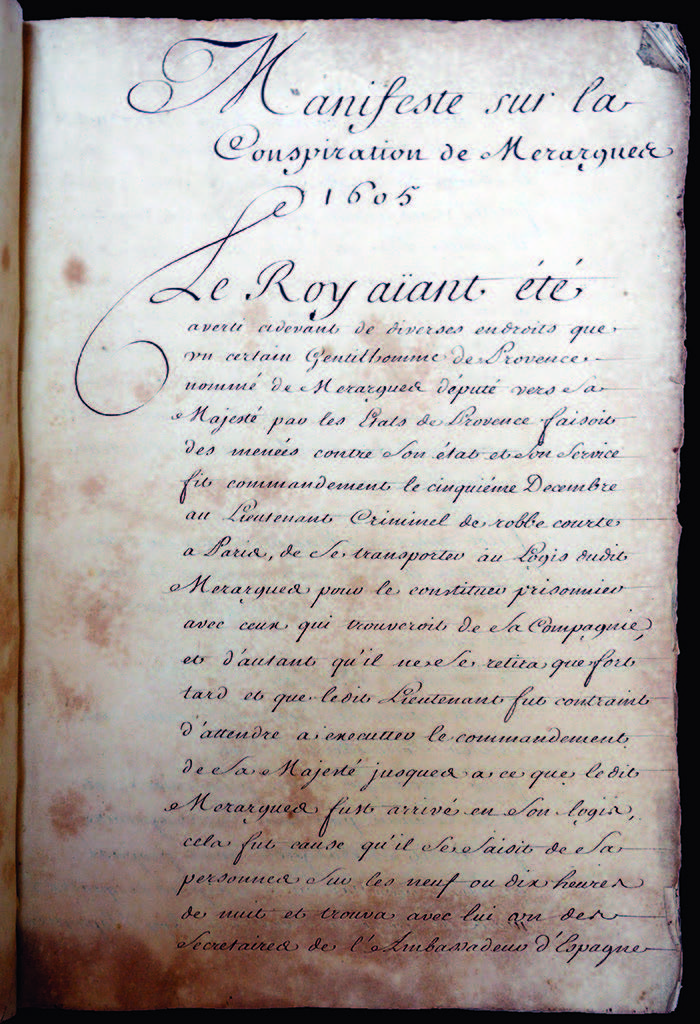 Manifeste sur la
Conspiration de Merargues
1605
Le Roy aïant été
averti cidevant de diverses endroits que
vn certain Gentilhomme de Provence
nommé de Merargues député vers Sa
Majesté par les Etats de Provence faisoit
des menées contre Son état et Son Service
fit commandement le cinquiéme Decembre
au Lieutenant Criminel de robbe courte
a Paris, de Se transporter au Logis dudit
Merargues pour le constituer prisonnier
avec ceux qui trouveroit de Sa Compagnie,
et d'autant qu'il ne Se retita que fort
tard et que ledit Lieutenant fut contraint
d'attendre a executter le commandement
de Sa Majesté jusques a ce que ledit
Merargues fust arrivé en Son logis,
cela fut cause qu'il Se Saisit de Sa
personnes Sur les neuf ou dix heures
de nuit et trouva avec lui vn des
Secretaires de l'Ambassadeur d'Espagne